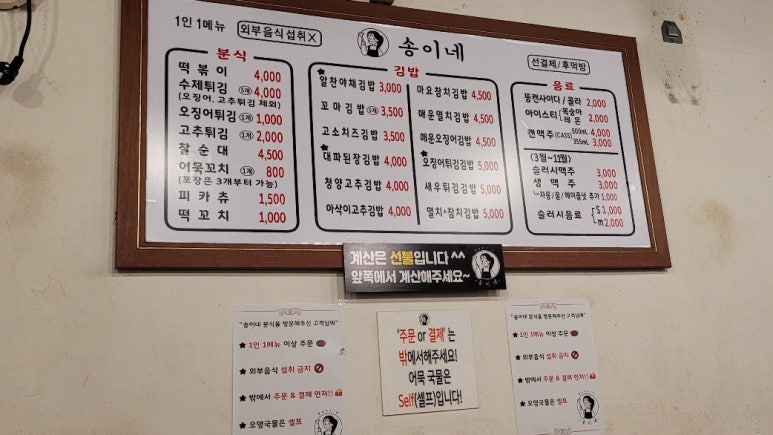 1인 1메뉴
외부음식섭취X
송이네
선결제/후먹방
분식
떡볶이 4,000
수제튀김 5개 4,000
(오징어, 고추튀김 제외)
오징어튀김 1개 1,000
고추튀김 1개 2,000
찰순대 4,500
어묵꼬치 1개 800
(포장은 3개부터 가능)
피카츄 1,500
떡꼬치 1,000
김밥
★알찬야채김밥 3,000
꼬마김밥 3,500
고소치즈김밥 3,500
★대파된장김밥 4,000
청양고추김밥 4,000
아삭이고추김밥 4,000
마요참치김밥 4,500
매운멸치김밥 4,500
매운오징어김밥 4,500
★오징어튀김김밥 5,000
새우튀김김밥 5,000
멸치+참치김밥 5,000
음료
뚱캔사이다/콜라 2,000
아이스티 복숭아 레몬 2,000
캔맥주(CASS) 500ml 4,000
355ml 3,000
(3월~11월)
슬러시맥주 3,000
생맥주 3,000
자몽/울/헤이즐넛 추가 1,000
슬러시음료 S 1,000
m 2,000
계산은 선불입니다 ^^
앞쪽에서 계산해주세요~
"송이네 분식을 방문해주신 고객님께"
★ 1인 1메뉴 이상 주문
★ 외부음식 섭취 금지
★ 밖에서 주문 & 결제 먼저!!
★ 오뎅국물은 셀프
'주문 or 결제' 는
밖에서해주세요!
어묵 국물은
Self(셀프)입니다!
"송이네 분식을 방문해주신 고객님께"
★ 1인 1메뉴 이상 주문
★ 외부음식 섭취 금지
★ 밖에서 주문 & 결제 먼저!!
★ 오뎅국물은 셀프